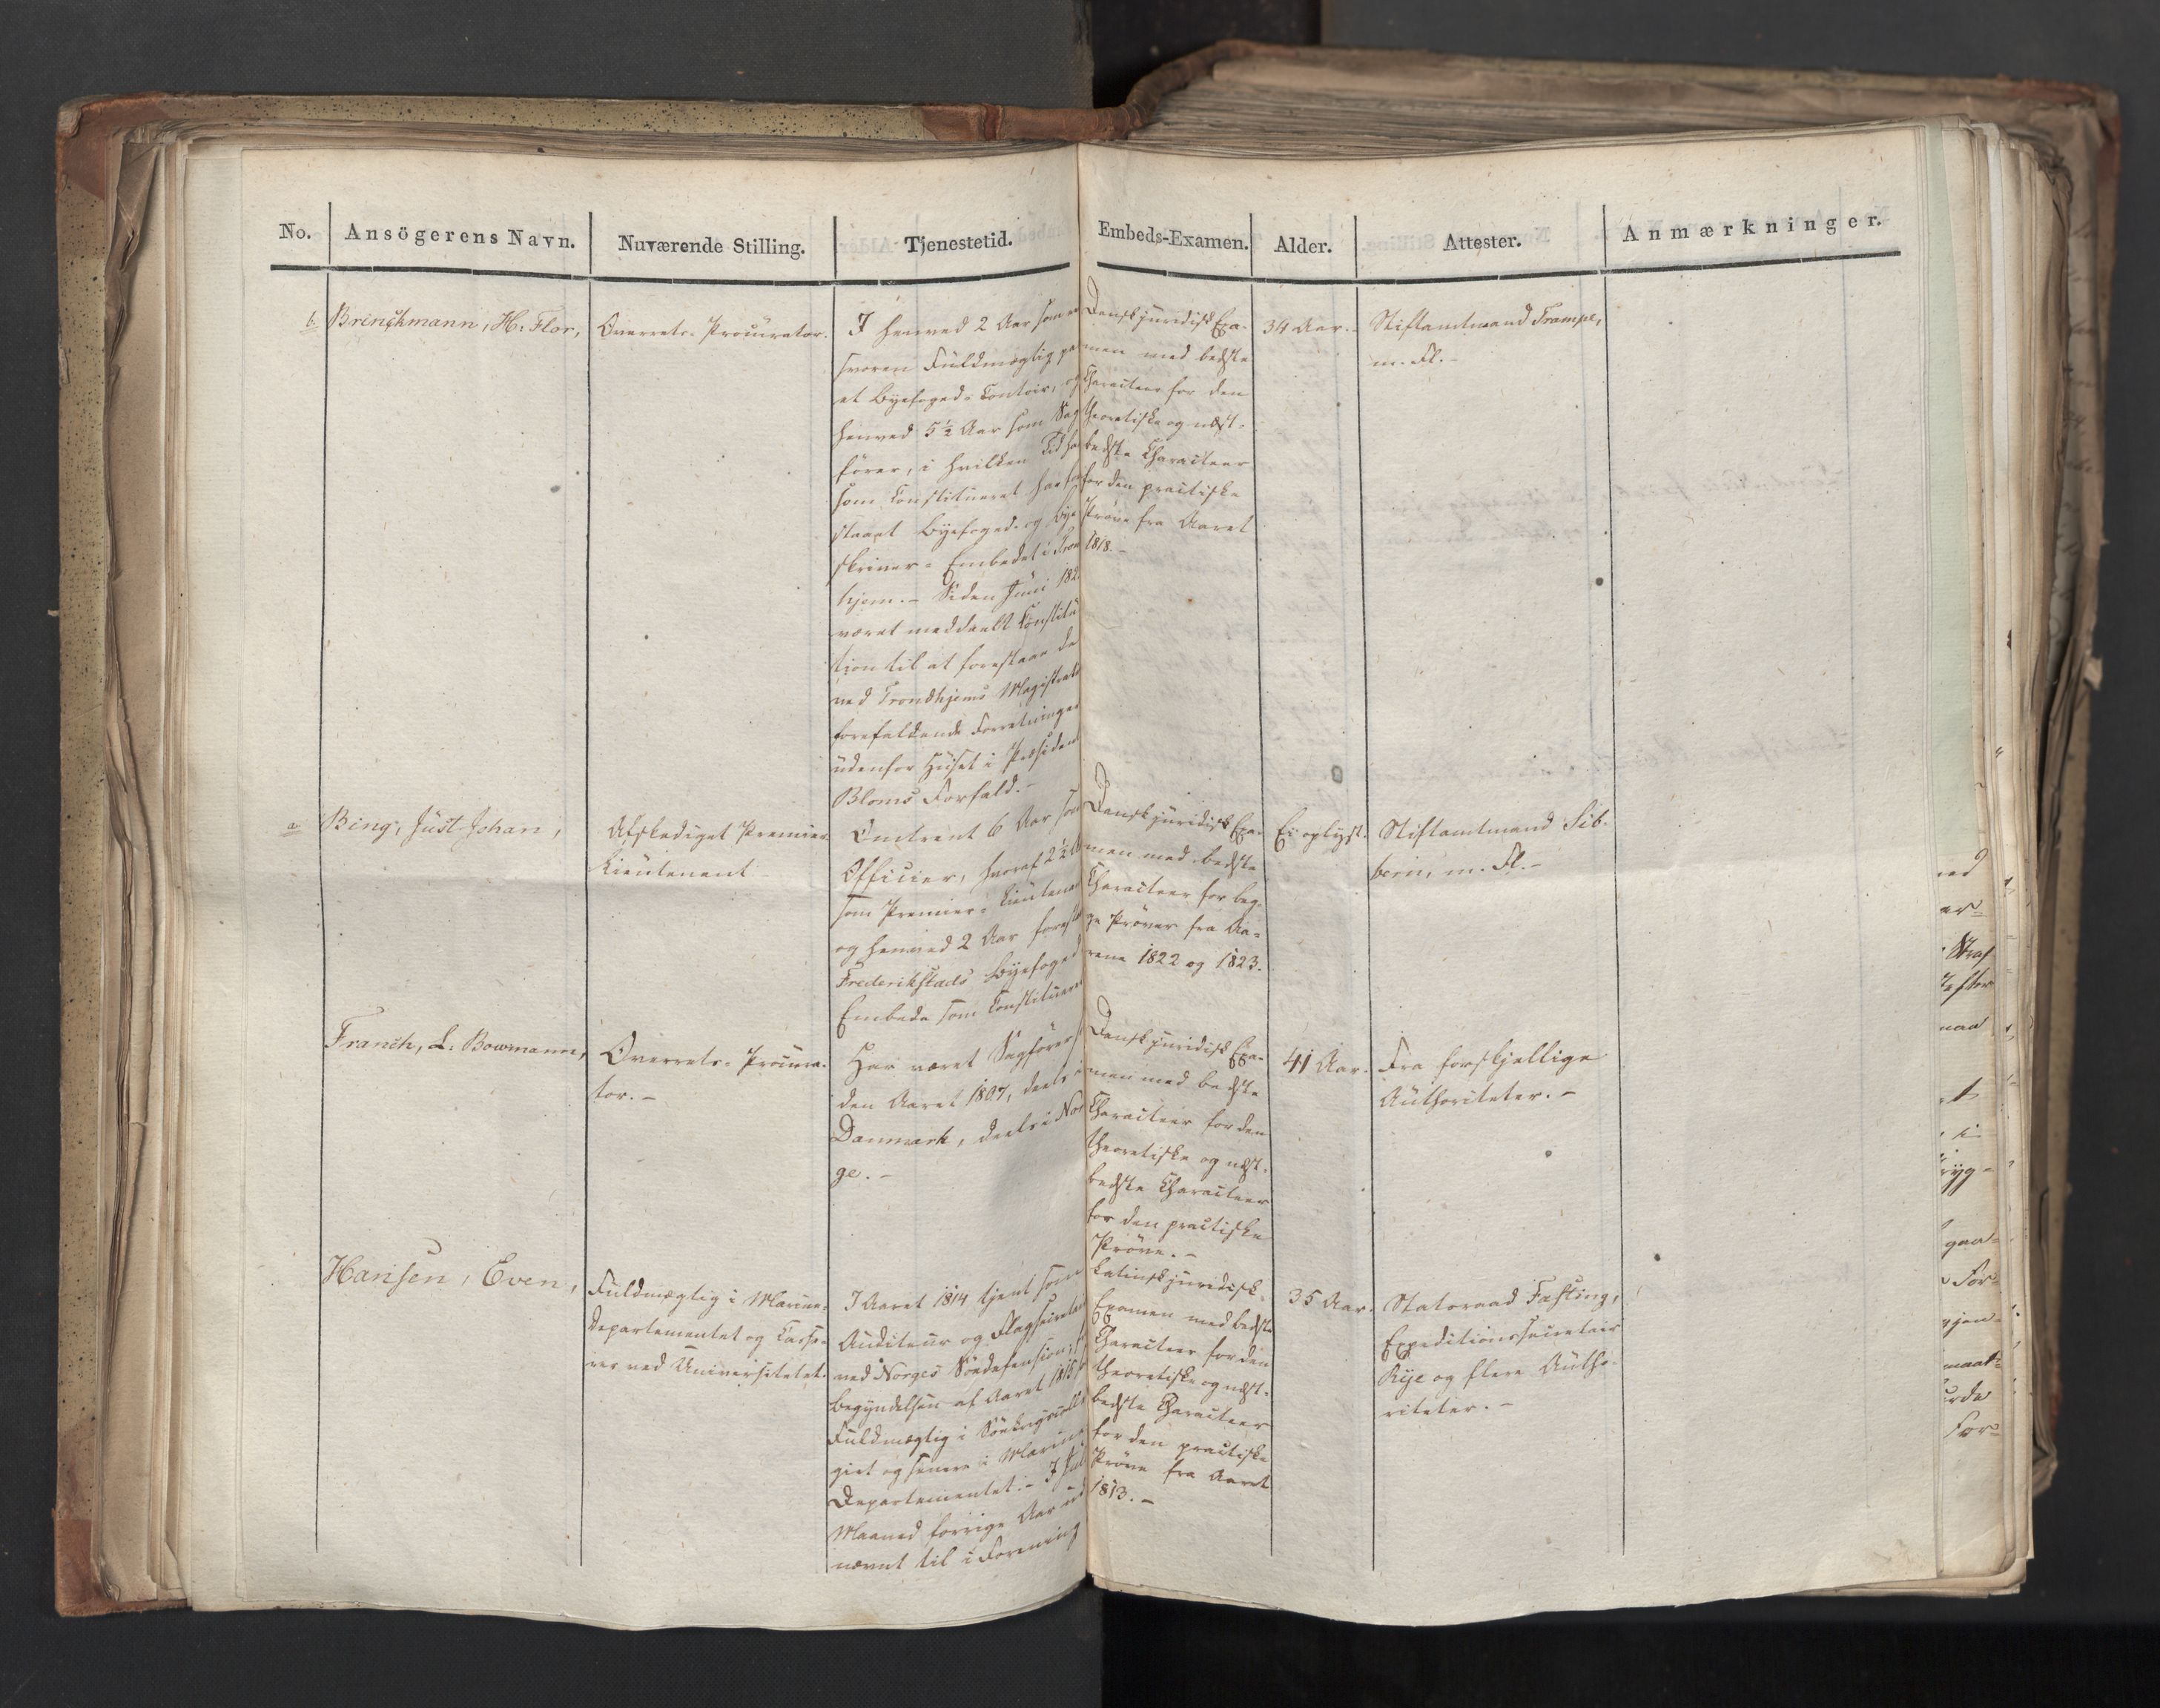 No. Ansögerens Navn. Nuværende Stilling. Tjenestetid. Embeds-Examen. Alder. Attester. Anmærkninger.
b. Brinchmann, H: Flor,
Overrets-Procurator.
I henved 2 Aar som
svoren Fuldmægtig
et Byefoged-Contoir,
henved 5 1/2 Aar som Sag
förer, i hvilken Tid
som Constitueret har
staaet Byefoged- og Bye
skriver-Embedet i Tron
hjem. – Siden Juni 182
været meddeelt Constitu
tion til at forestaae de
ved Trondhjems Magistrat
forefaldende Forretninger
udenfor Huset i Præsident
Bloms Forfald. –
Dansk juridisk Exa-
men med bedste
Characteer for den
theoretiske og næst-
bedste Characteer
for den practiske
Pröve fra Aaret
1818. –
34 Aar. –
Stiftamtmand Trampe,
m. Fl. –
a Bing, Just Johan,
Afskediget Premier
Lieutenant
Omtrent 6 Aar som
Officier, hvoraf 2 1/2
som Premier-Lieutenant
og henved 2 Aar
Frederikstads Byefoged
Embede som Constitueret
Dansk juridisk Exa-
men med bedste
Characteer for beg-
ge Pröver fra Aa-
rene 1822 og 1823.
Ei oplyst.
Stiftamtmand Sib-
bern, m. Fl. –
Franck, L: Bowmann,
Overrets-Procura-
tor. –
Har været Sagförer
den Aaret 1807, deels i
Danmark, deels i Nor
ge. –
Dansk juridisk Exa-
men med bedste
Characteer for den
theoretiske og næst-
bedste Characteer
for den practiske
Pröve. –
41 Aar.
Fra forskjellige
Authoriteter. –
Hansen, Even,
Fuldmægtig i Marine-
Departementet og Casse-
rer ved Universitetet.
I Aaret 1814 tjent som
Auditeur og Flagsecretair
ved Norges Söedefension,
Begyndelsen af Aaret 1815
Fuldmægtig i Söekrigscolle
giet og senere i Marine
Departementet. – I
Maaned forrige Aar ud
nævnt til i Forening
Latinsk juridisk
Examen med bedste
Characteer for den
theoretiske og næst-
bedste Characteer
for den practiske
Pröve fra Aaret
1813. –
35 Aar.
Statsraad Fasting,
Expeditionssecretair
Rye og flere Autho-
riteter. –